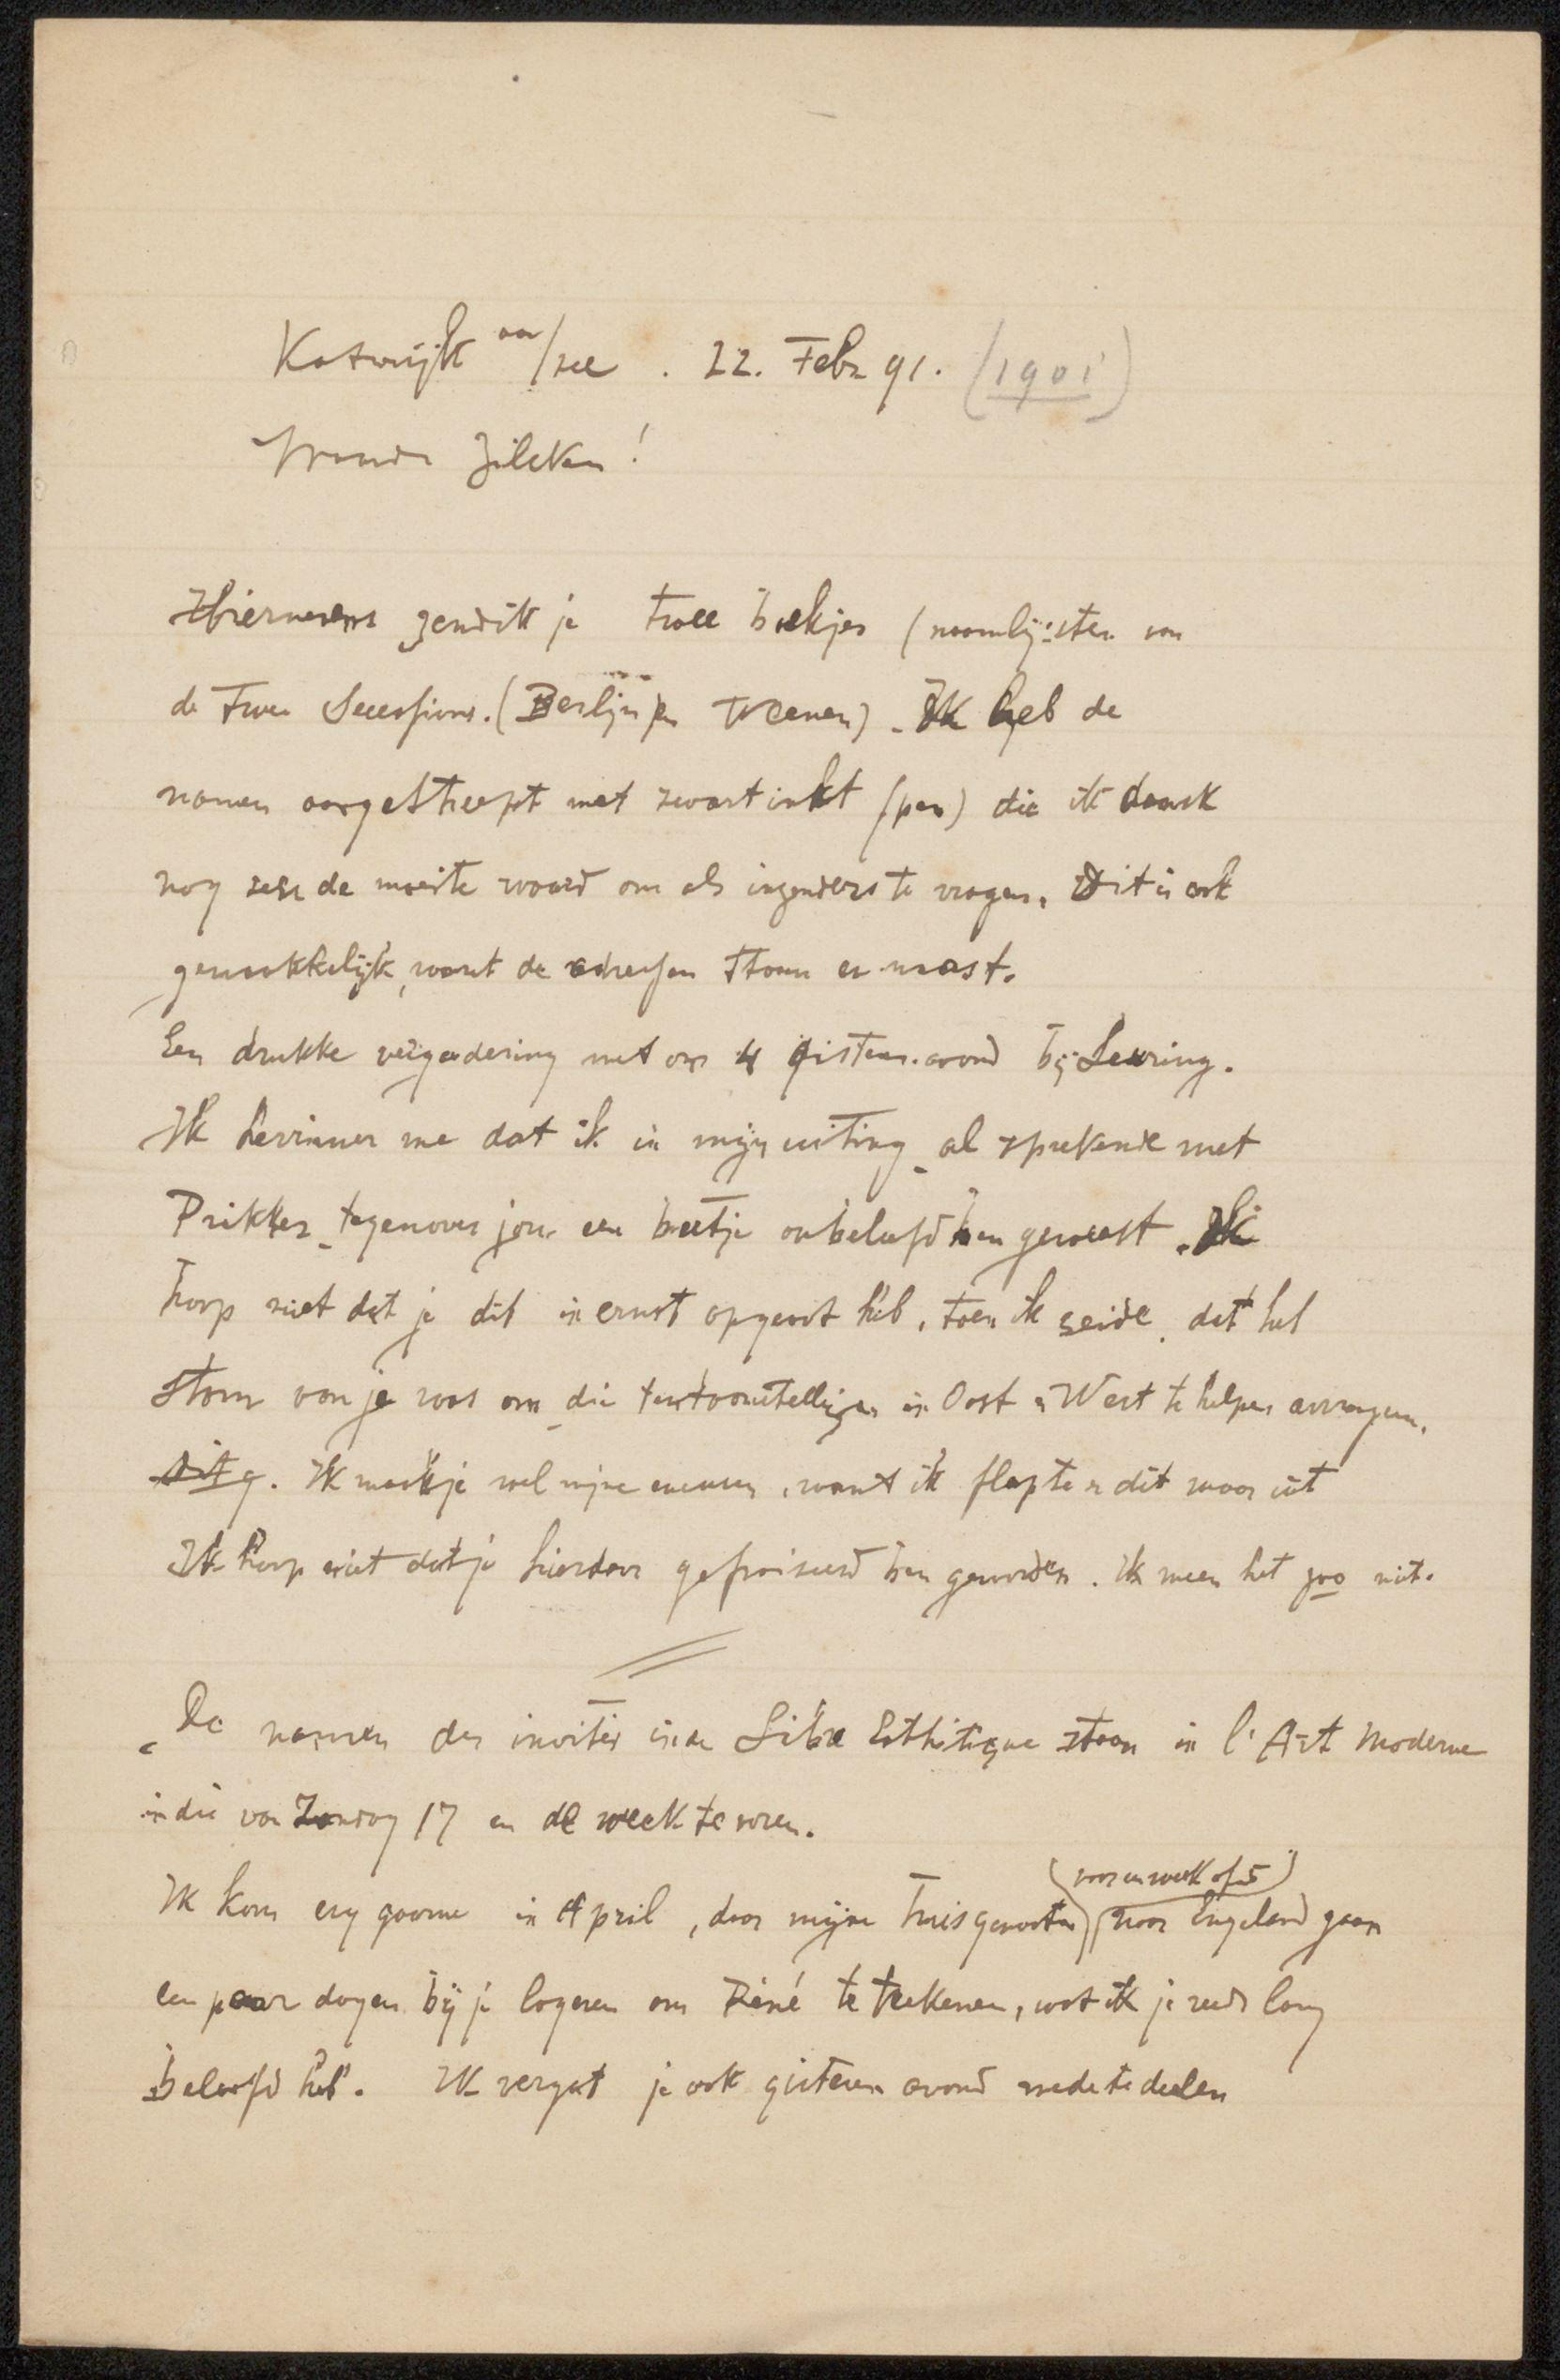 Katwijk aan/zee . 22. Febr 91. (1901)
Waarde Zilcken!
Hiernevens zend ik je twee boekjes (naamlijsten van
de twee Secessions. (Berlijn en Weenen). Ik heb de
namen aangestreept met zwart inkt (pen) die ik denk
nog zeer de moeite waard om als inzenders te vragen. Dit is ook
gemakkelijk, want de adressen staan er naast.
Een drukke vergadering met ons 4 gisteren avond bij Leuring.
Ik herinner me dat ik in mijn uiting - al sprekende met
Prikker - tegenover jou een beetje onbeleefd ben geweest. Ik
hoop niet dat je dit in ernst opgevat heb, toen ik zeide, dat het
stom van je was om die tentoonstellingen in Oost en West te helpen arrangeren.
Ik maak je wel mijne excuses, want ik flapte er dit maar uit
Ik hoop niet dat je hierdoor gefroisseerd ben geworden. Ik meen het zoo niet.
De namen der invités in de Libre Esthétique staan in l'Art Moderne
in die van Zondag 17 en de week te voren.
(voor een week of 5)
Ik kom erg gaarne in April, daar mijne huisgenooten naar Engeland gaan
een paar dagen bij je logeren om Réné te teekenen, wat ik je reeds lang
beloofd heb. Ik vergat je ook gisteren avond mede te deelen